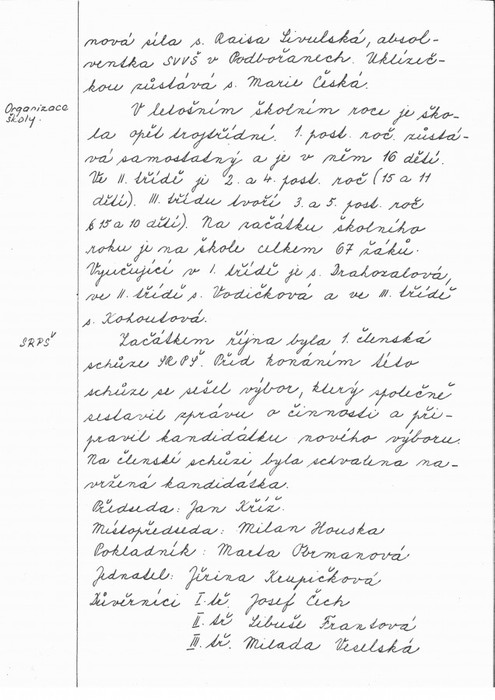 nová síla s. Raisa Sivulská, absol-
ventka SVVŠ v Podbořanech. Uklízeč-
kou zůstává s. Marie Česká.
Organizace
školy.
V letošním školním roce je ško-
la opět trojtřídní. 1. post. roč. zůstá-
vá samostatný a je v něm 16 dětí.
Ve II. třídě je 2. a 4. post. roč (15 a 11
dětí). III. třídu tvoří 3. a 5. post. roč
(15 a 10 dětí). Na začátku školního
roku je na škole celkem 67 žáků.
Vyučující v 1. třídě je s. Drahozalová,
ve II. třídě s. Vodičková a ve III. třídě
s. Kohoutová.
SRPŠ
Začátkem října byla 1. členská
schůze SRPŠ. Před konáním této
schůze se sešel výbor, který společně
sestavil zprávu o činnosti a při-
pravil kandidátku nového výboru.
Na členské schůzi byla schválena na-
vržená kandidátka.
Předseda: Jan Kříž.
Místopředseda: Milan Houska
Pokladník: Marta Pormanová
Jednatel: Jiřina Krupičková
Důvěrníci I. tř. Josef Čech
II. tř Libuše Frantová
III. tř. Milada Veselská